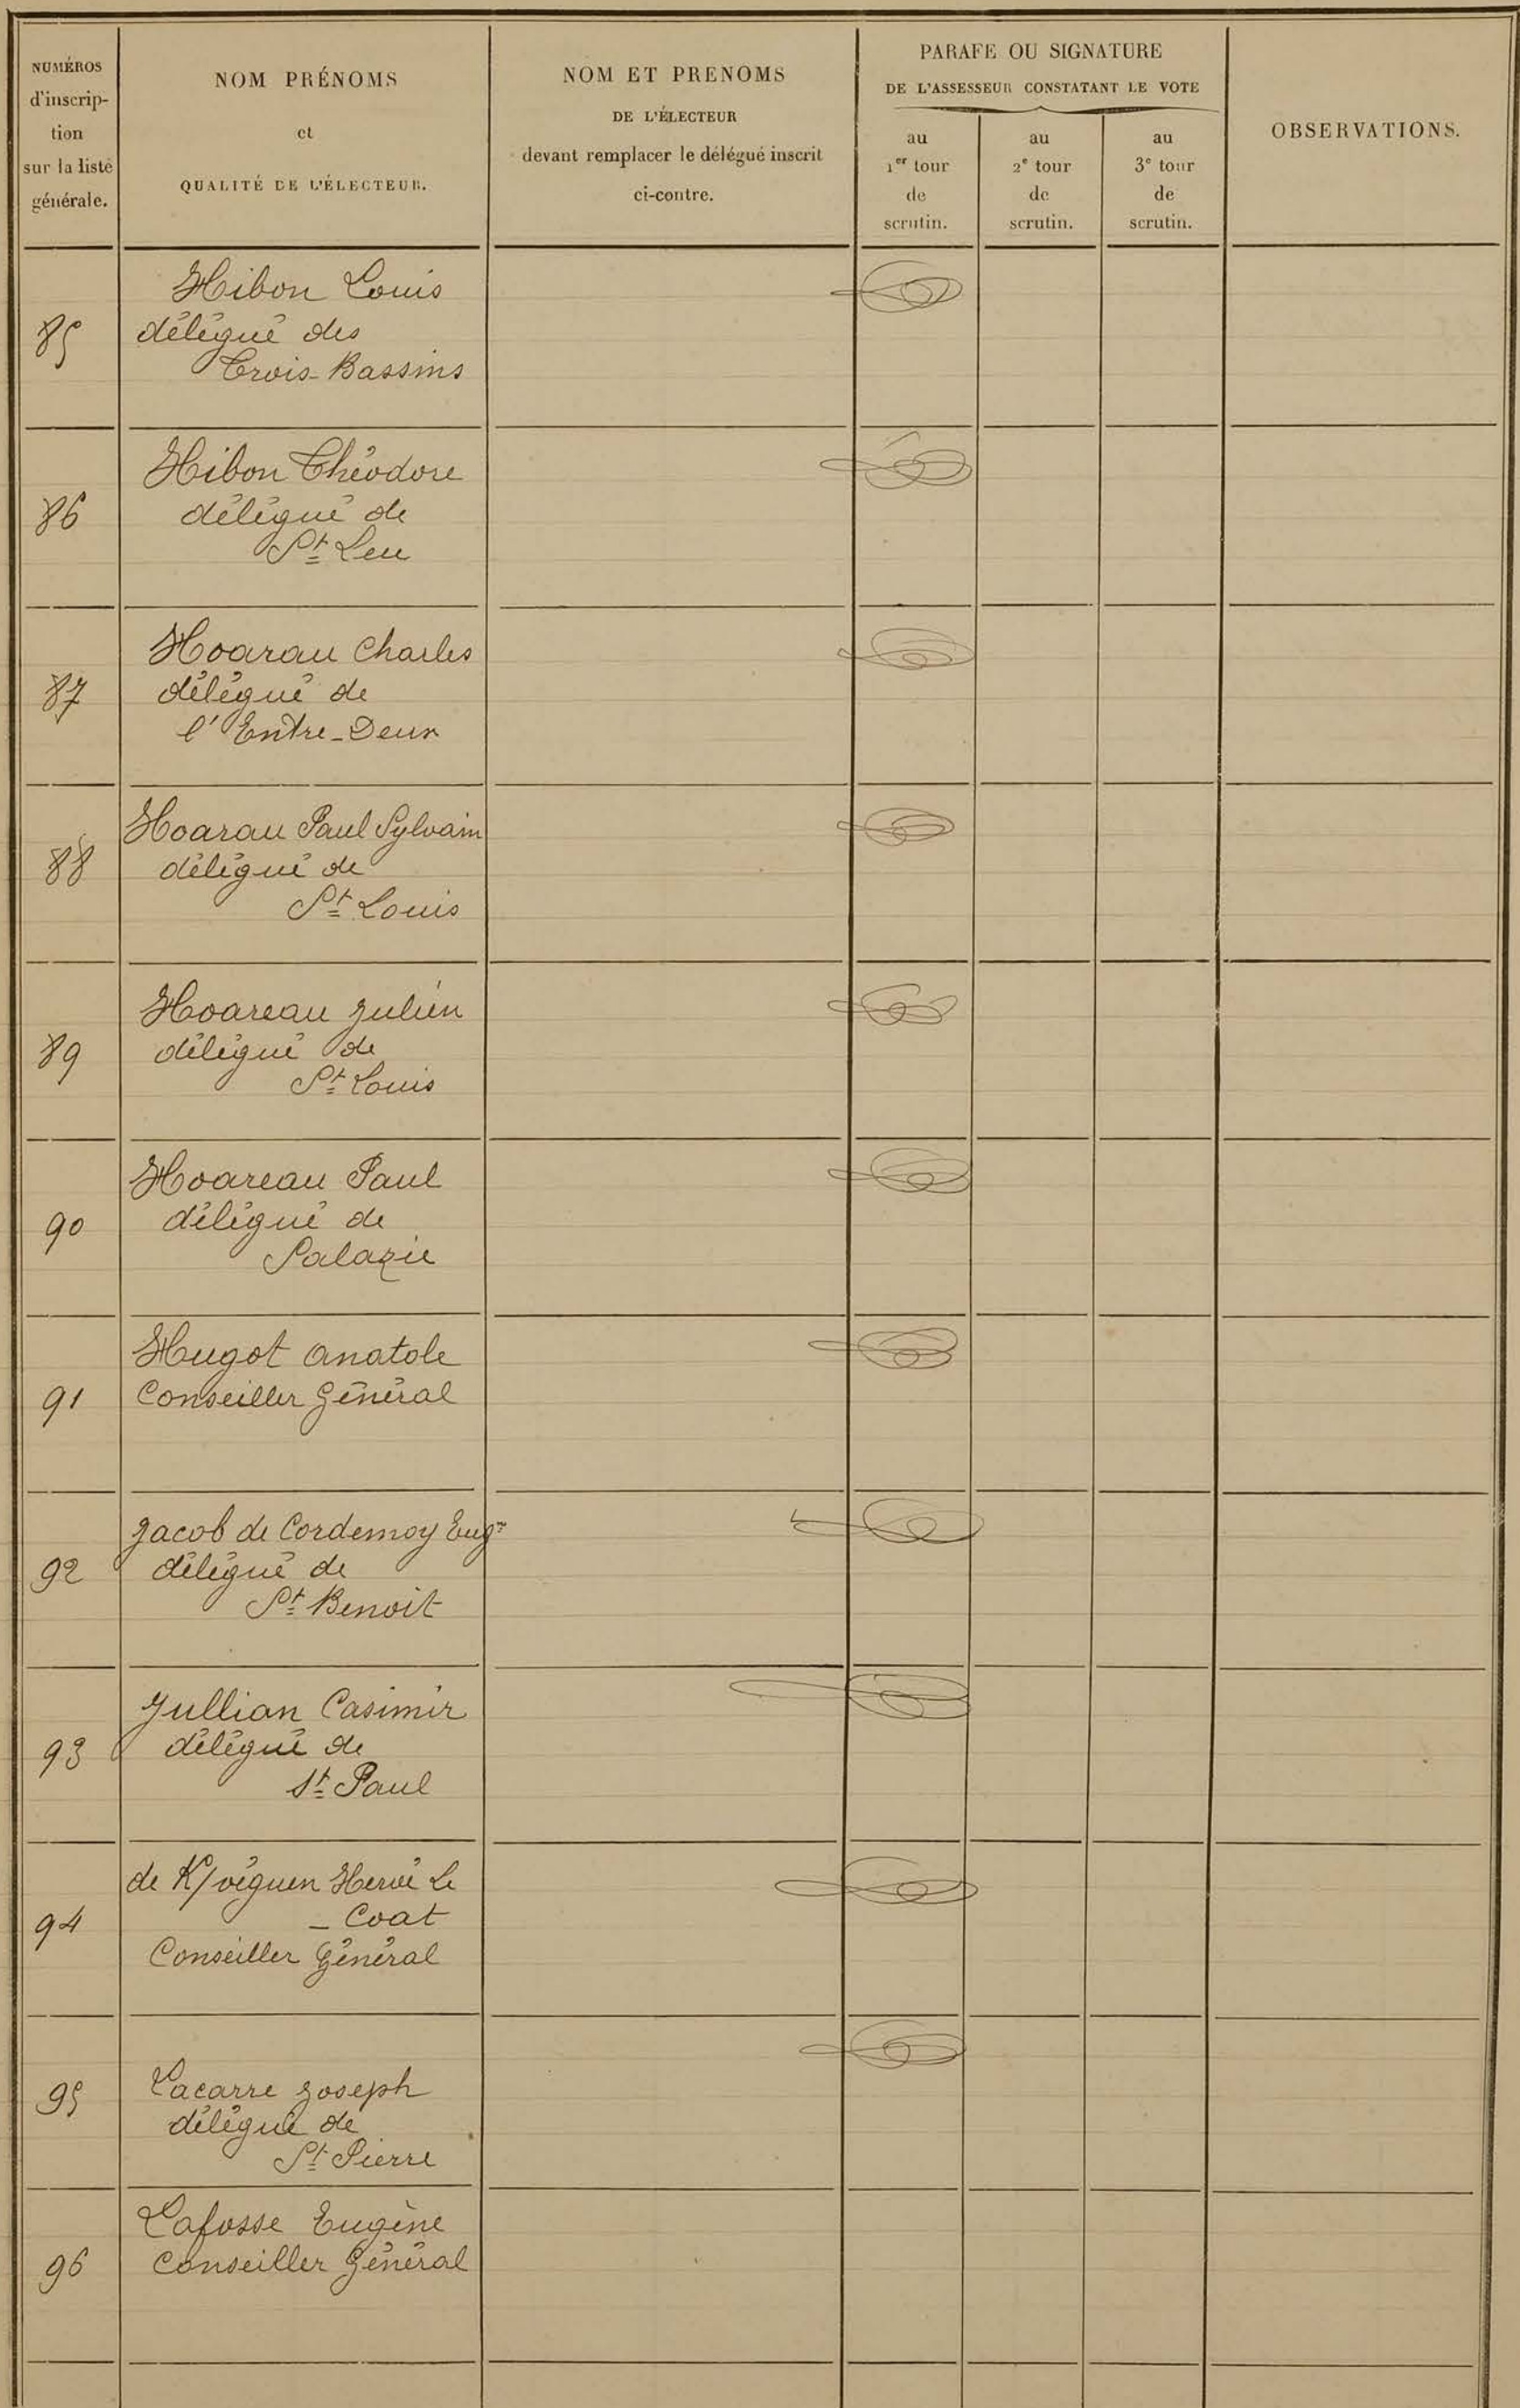 NUMÉROS
d'inscrip-
tion
sur la liste
générale.
NOM PRÉNOMS
et
QUALITÉ DE L'ÉLECTEUR.
NOM ET PRENOMS
DE L'ÉLECTEUR
devant remplacer le délégué inscrit
ci-contre.
PARAFE OU SIGNATURE
DE L'ASSESSEUR CONSTATANT LE VOTE
au
1er tour
de
scrutin.
au
2e tour
de
scrutin.
au
3e tour
de
scrutin.
OBSERVATIONS.
85
Hibon Louis
délégué des
Trois-Bassins
86
Hibon Théodore
délégué de
St Leu
87
Hoarau Charles
délégué de
l'Entre-Deux
88
Hoarau Paul Sylvain
délégué de
St Louis
89
Hoareau Julien
délégué de
St Louis
90
Hoareau Paul
délégué de
Salazie
91
Hugot Anatole
Conseiller Général
92
Jacob de Cordemoy Eugne
délégué de
St Benoit
93
Jullian Casimir
délégué de
St Paul
94
de K/véguen Hervé Le
- Coat
Conseiller Général
95
Lacarre Joseph
délégué de
St Pierre
96
Lafosse Eugène
Conseiller Général